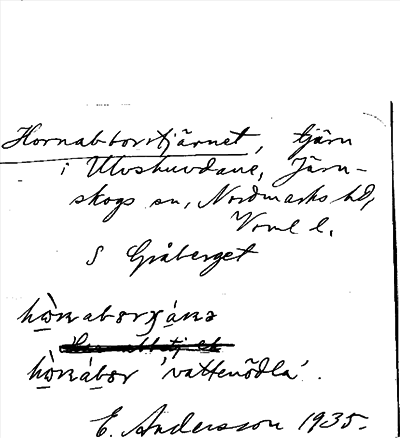 Hornabborrtjärnet, tjärn
i Ulvshuvdane, Järn-
skogs sn, Nordmarks hd,
Vrml l.
S Gråberget
hò̱rnaborχá̱nə
hò̱rná̱bor 'vattenödla'.
E. Andersson 1935.